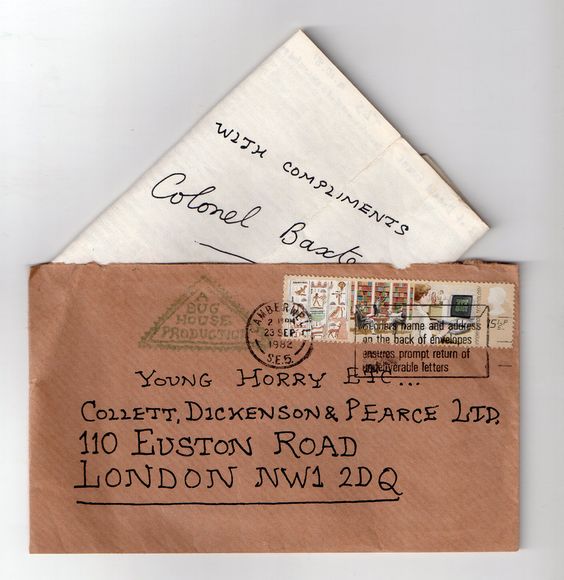 WITH COMPLIMENTS
Colonel Baxte
A
BUG
HOUSE
PRODUCTION
CAMBERWELL
23 SEP
1982
S.E.5.
15½P
Senders name and address
on the back of envelopes
ensures prompt return of
undeliverable letters
YOUNG HORRY ETC...
COLLETT, DICKENSON & PEARCE LTD.
110 EUSTON ROAD
LONDON NW1 2DQ